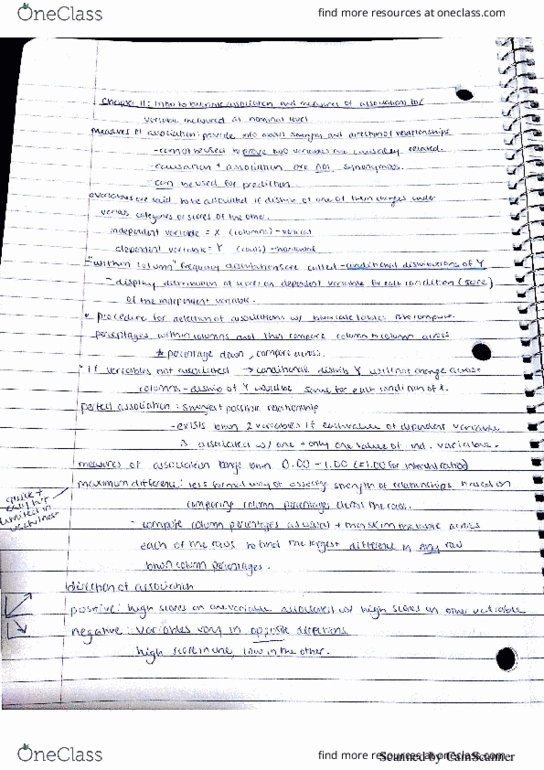 OneClass
find more resources at oneclass.com
Chapter 11: Intro to bivariate association and measures of association for
variable measured at nominal level
measures of association: provide info about strength and direction of relationships
- cannot be used to prove two variables are causally related.
- causation + association are not synonymous.
- can be used for prediction
variables are said to be associated if distrib of one of them changes under
various categories or scores of the other.
independent variable = X (columns) - vertical
dependent variable = Y (rows) - horizontal
"within column" frequency distributions are called - conditional distributions of Y
- display distribution of scores on dependent variable for each condition (score)
of the independent variable.
* procedure for detection of associations w/ bivariate tables is to compute
percentages within columns and then compare column to column across
★ percentage down, compare across.
* if variables not associated → conditional distrib Y will not change across
columns - distrib of Y would be same for each condition of X.
perfect association: strongest possible relationship
- exists btwn 2 variables if each value of dependent variable
is associated w/ one + only one value of ind. variable.
measures of association range btwn 0.00 - 1.00 (±1.00 for interval ratio)
maximum difference: less formal way of assessing strength of relationships based on
comparing column percentages across the rows.
quick + easy but limited in usefulness
- compute column percentages as usual + then skim the table across
each of the rows to find the largest difference in any row
btwn column percentages.
direction of association
positive: high scores on one variable associated w/ high scores on other variable
negative: variables vary in opposite directions
high score in one, low in the other.
OneClass
find more resources at oneclass.com
Scanned by CamScanner